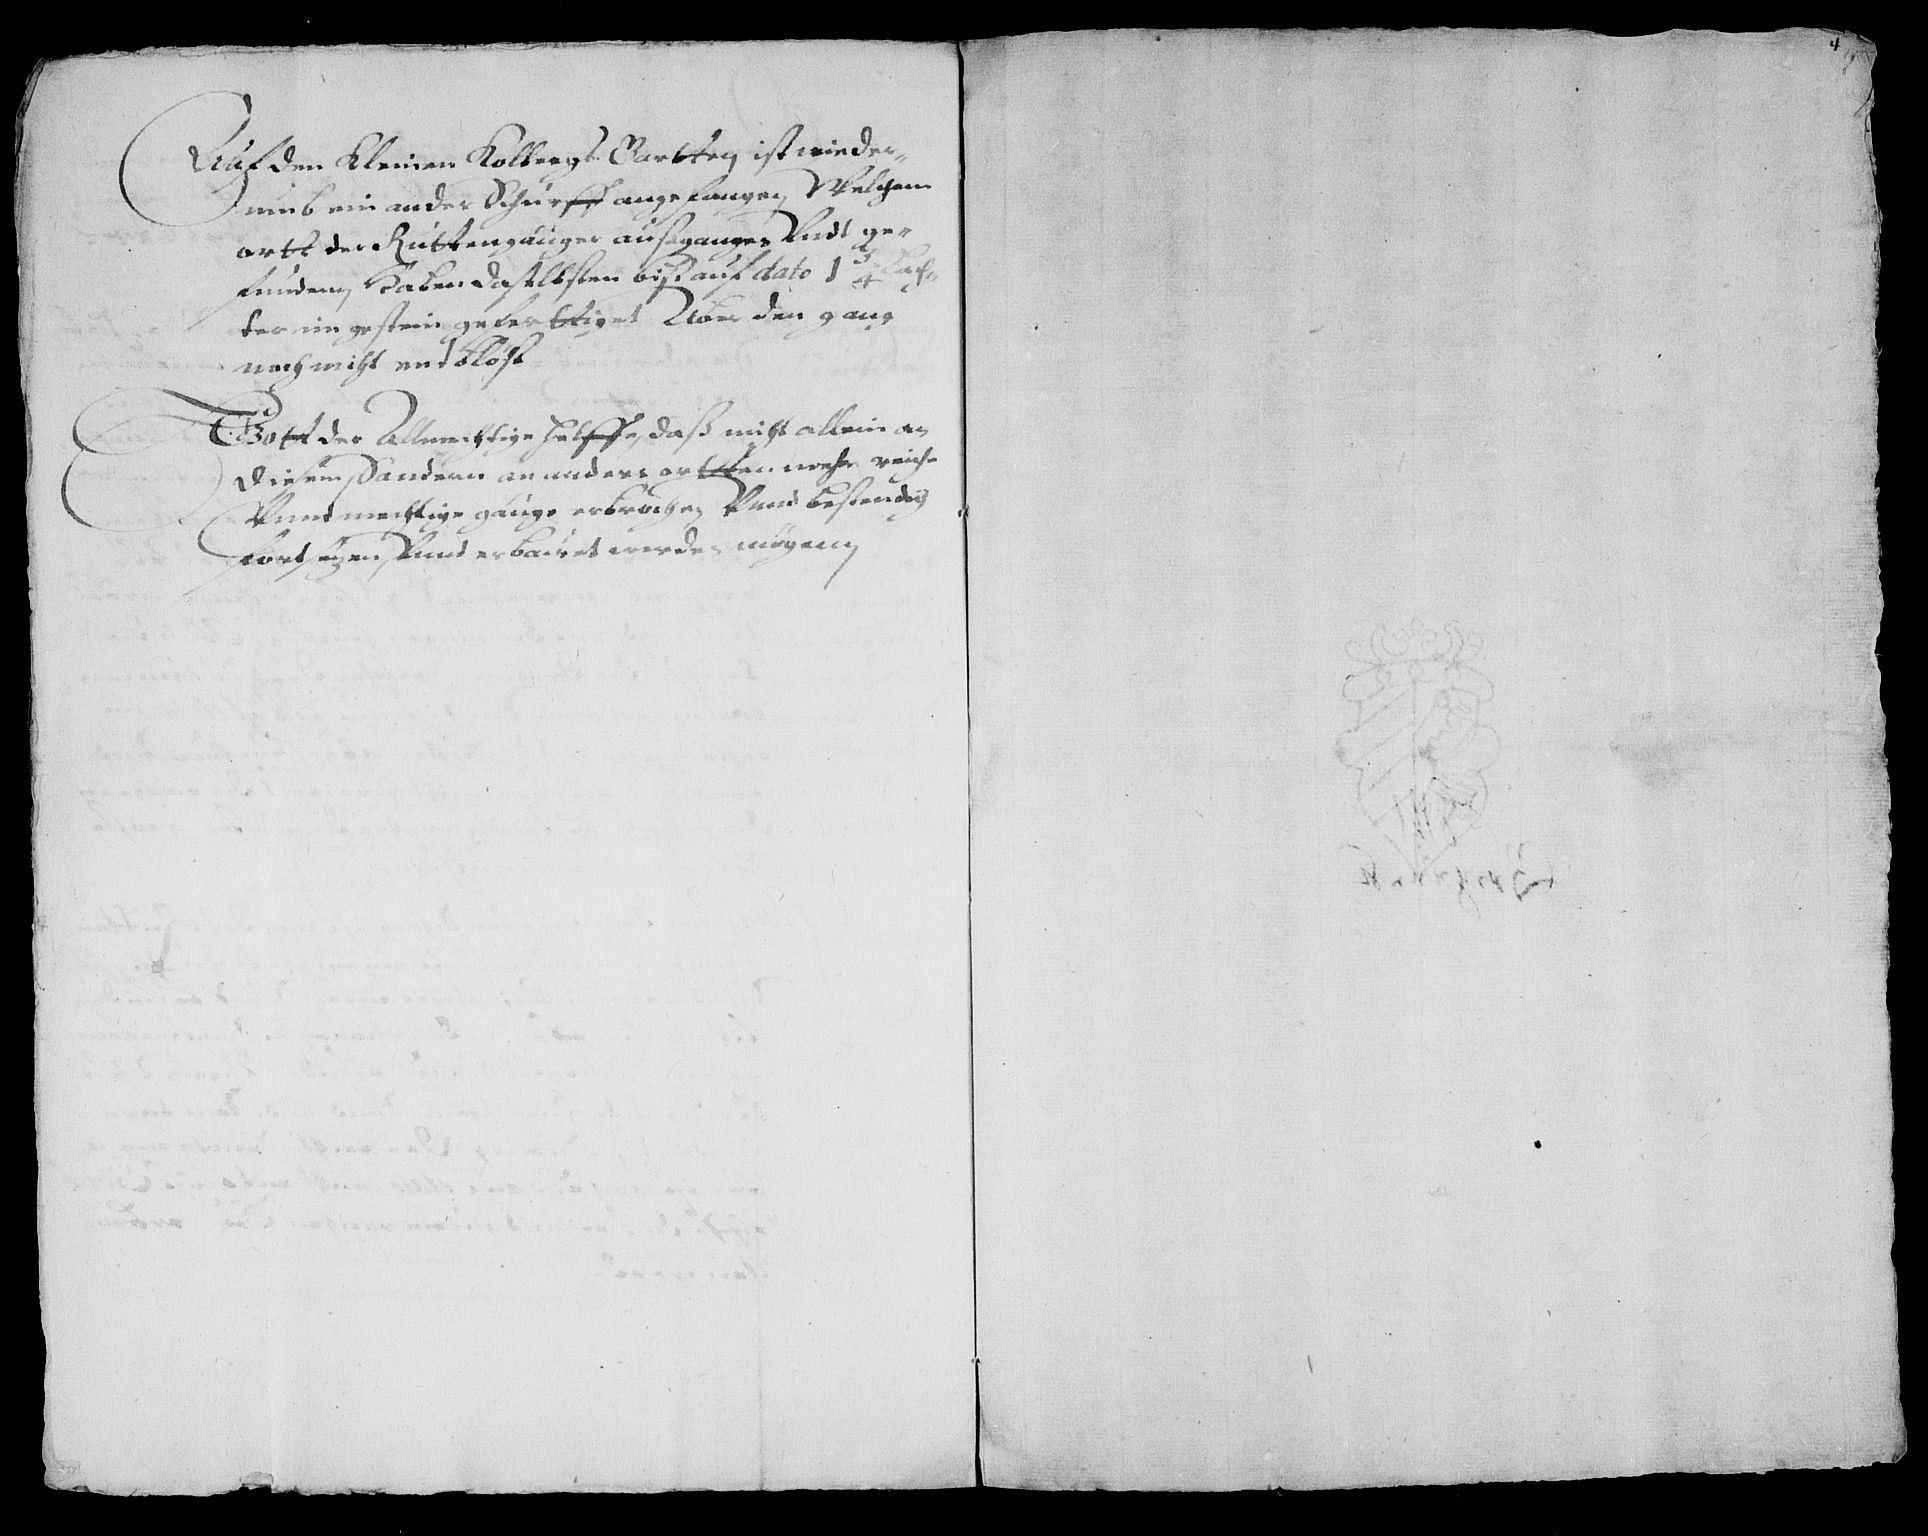 4
Auf den Kleinen Kolbergs Gartten ist wieder„
umb ein ander Schurff angefangen Welchem
ortt der Ruttengänger aussgangen Undt ge„
funden, haben daselbsten biß auf dato 1 3/4 Lach„
ter im gestein gefertiget Aber den gang
noch nicht endtblöst
Gott der Allmechtige helffe, daß nicht allein an
diesem, Sondern an andern ortten mehr reiche
Unnd mechtige gänge erbrochen Unnd bestendig
fort Unnd erbauet werden mögenn